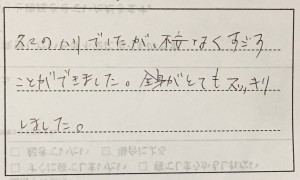 スでのハリでしたが、不安なくすごす
ことができました。全身がとてもスッキリ
しました。